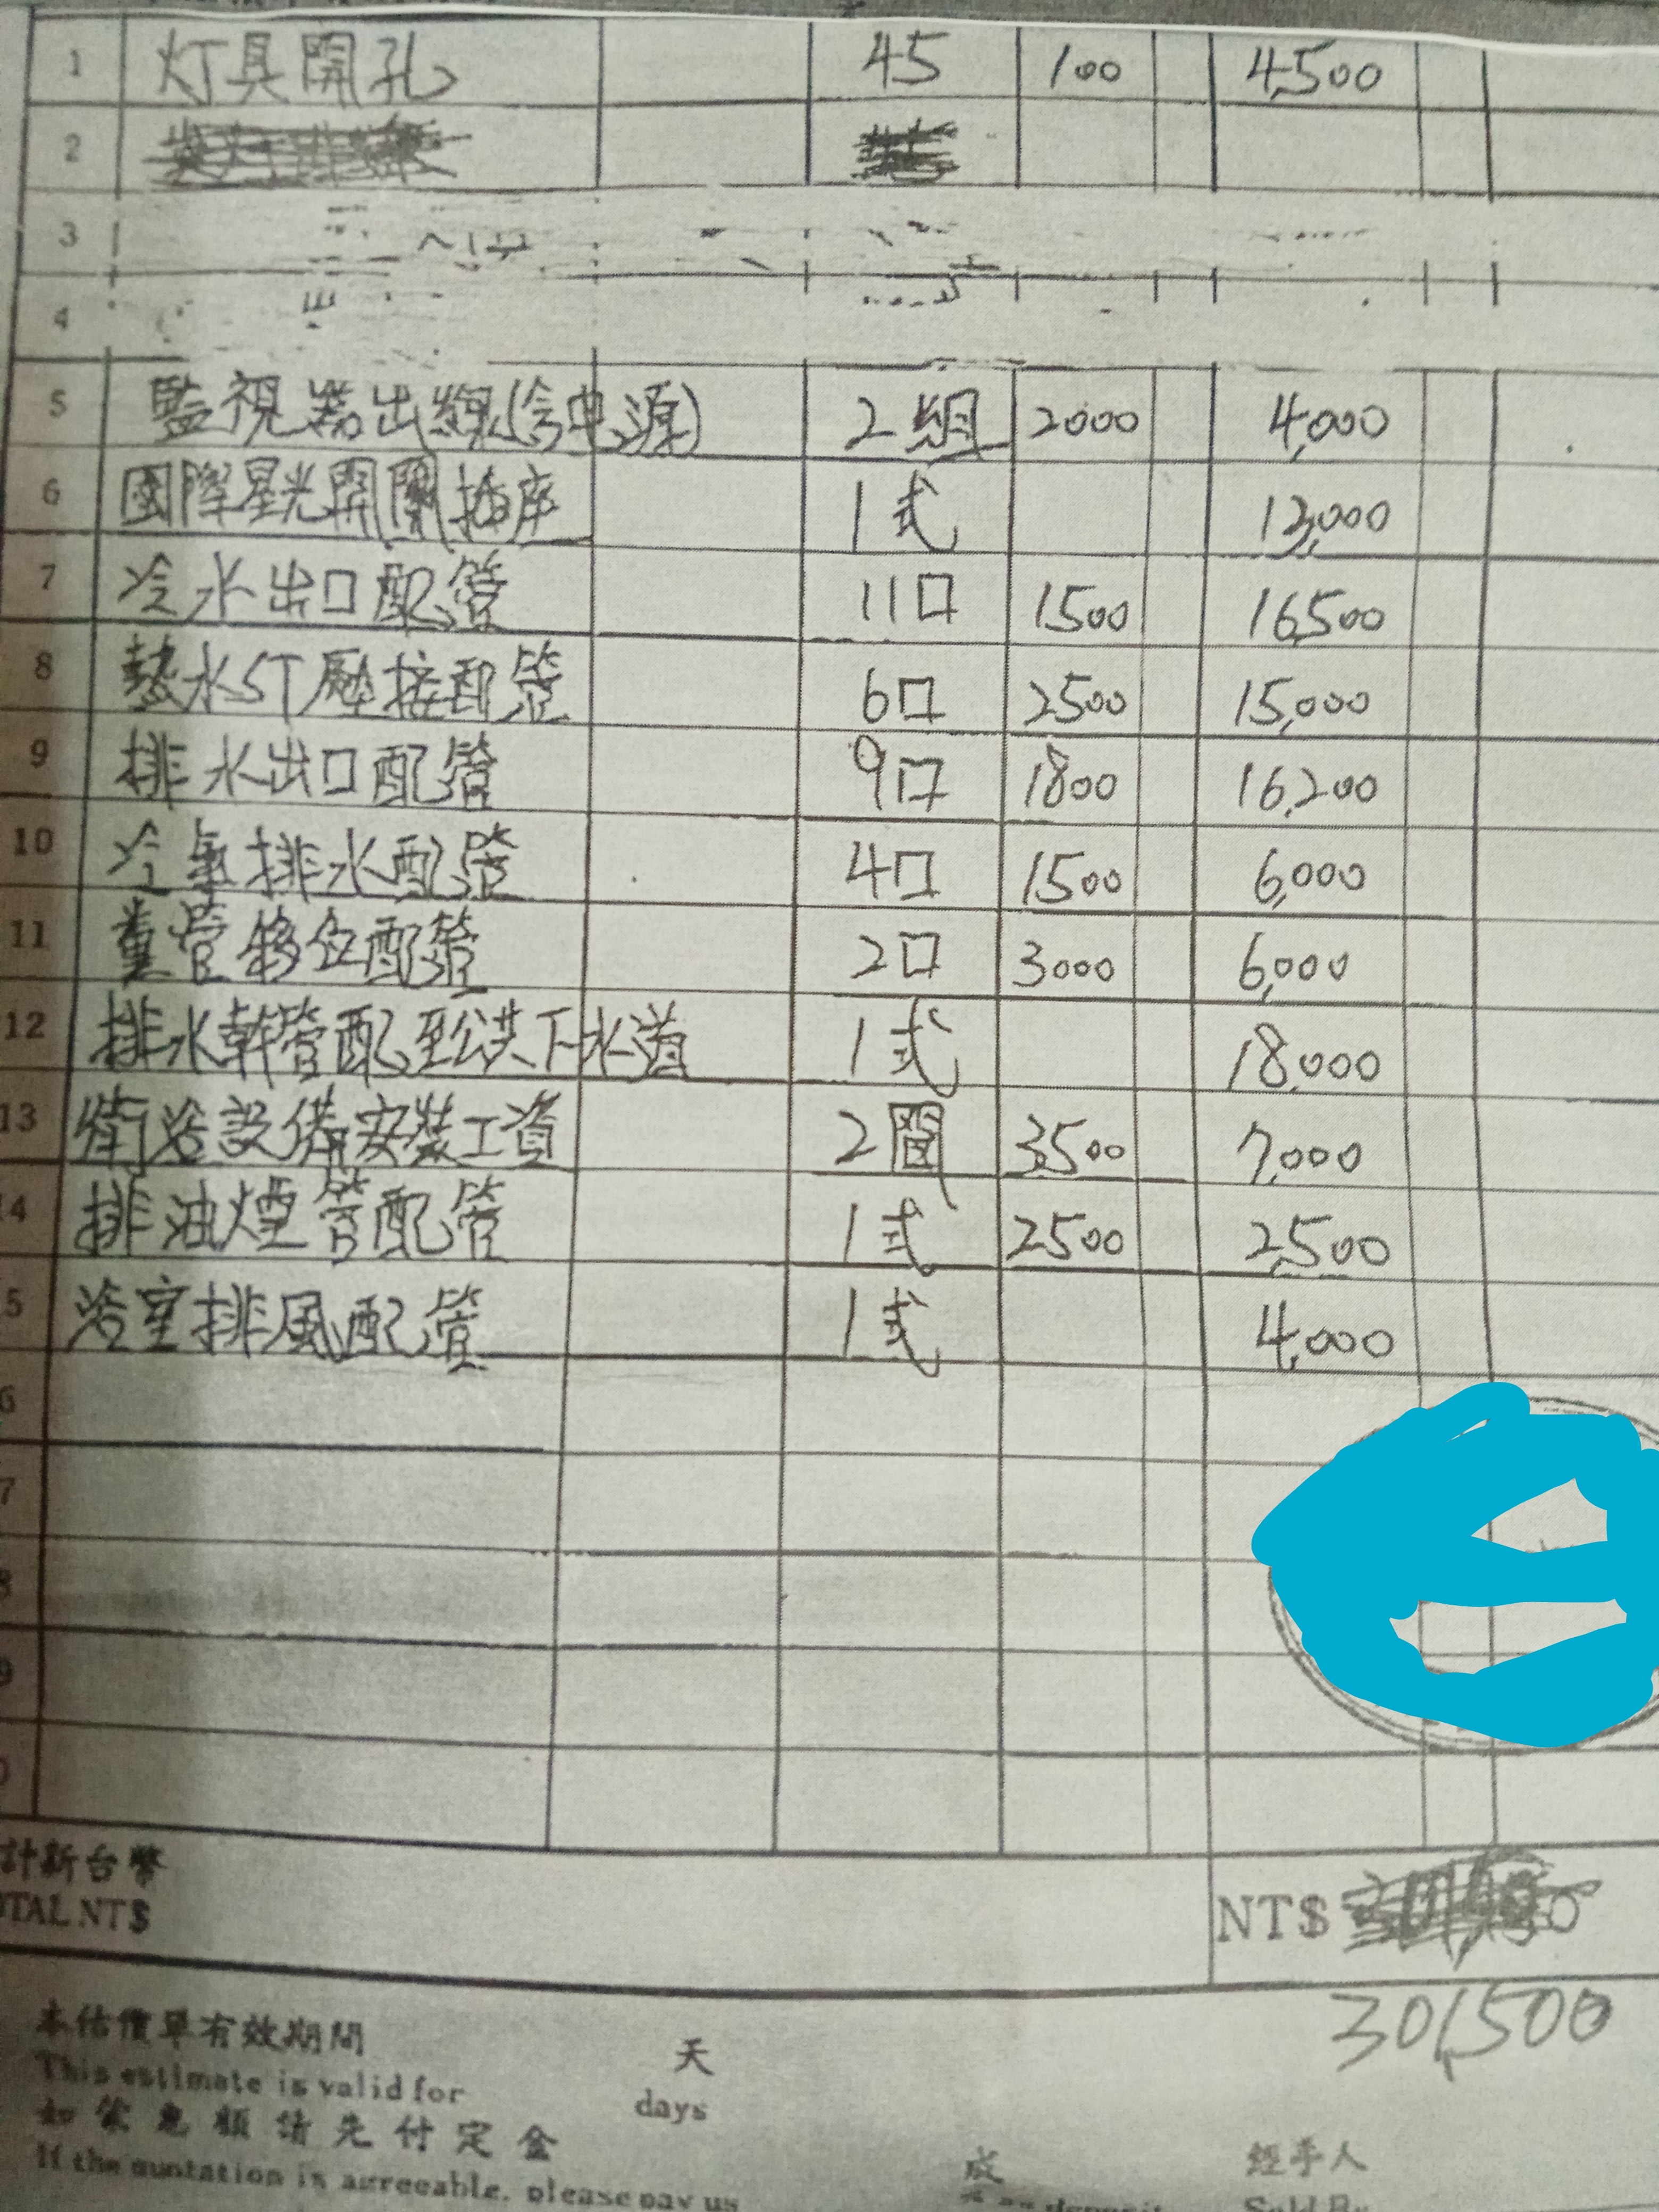 1 灯具開孔 45 100 4,500
2
3
4
5 監視器出線(含电源) 2組 2000 4,000
6 國際星光開關插座 1式 13,000
7 冷水出口配管 11口 1500 16,500
8 熱水ST壓接配管 6口 2500 15,000
9 排水出口配管 9口 1800 16,200
10 冷氣排水配管 4口 1500 6,000
11 糞管移位配管 2口 3000 6,000
12 排水幹管配至公共下水道 1式 18,000
13 衛浴設備安裝工資 2間 3,500 7,000
4 排油煙管配管 1式 2500 2,500
5 浴室排風配管 1式 4,000
6
7
8
9
0
計新台幣
OTAL NT$ NT$
301,500
本估價單有效期間 天
This estimate is valid for days
如蒙惠顧請先付定金 成 經手人
If the quotation is agreeable, please pay us deposit Sold By